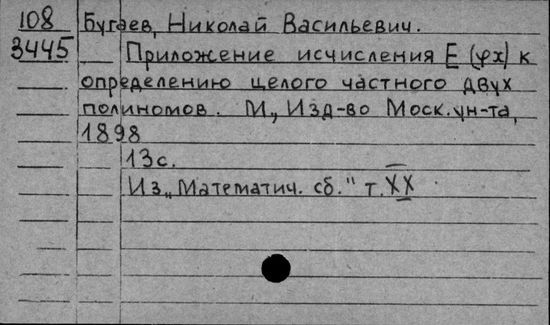 108 Бугаев, Николай Васильевич.
3445 Приложение исчисления E (φx) к
определению целого частного двух
полиномов. М., Изд-во Моск. ун-та,
1898
13 с.
Из „Математич. сб." т. XX